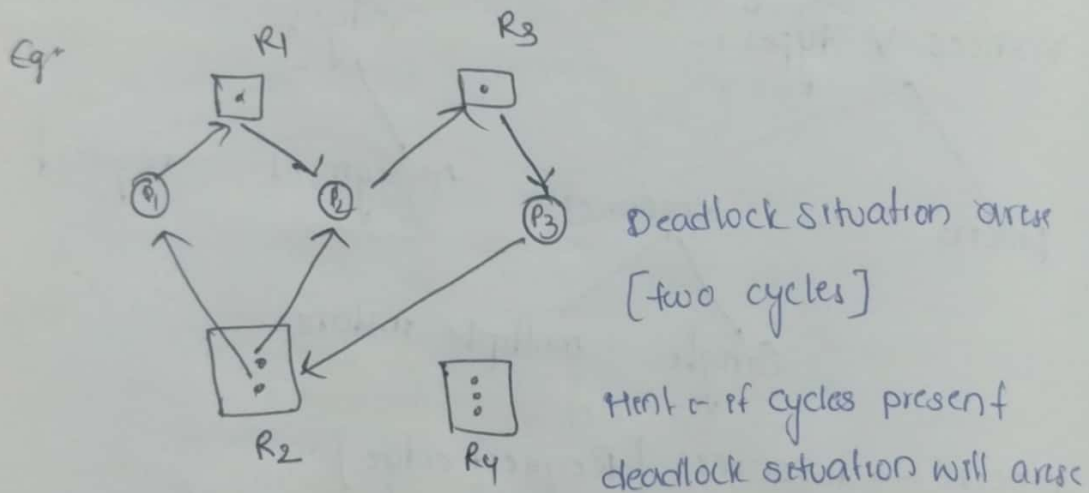 Eg:-
R1
R3
P1
P2
P3
Deadlock situation arise
[two cycles]
R2
R4
Hint :- if cycles present
deadlock situation will arise